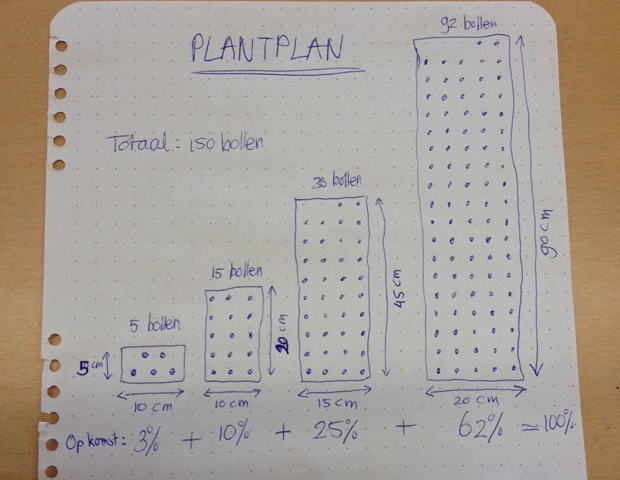 92 bollen
PLANTPLAN
Totaal: 150 bollen
38 bollen
15 bollen
5 bollen
5 cm
20 cm
45 cm
90 cm
10 cm
10 cm
15 cm
20 cm
Opkomst: 3% + 10% + 25% + 62% = 100%